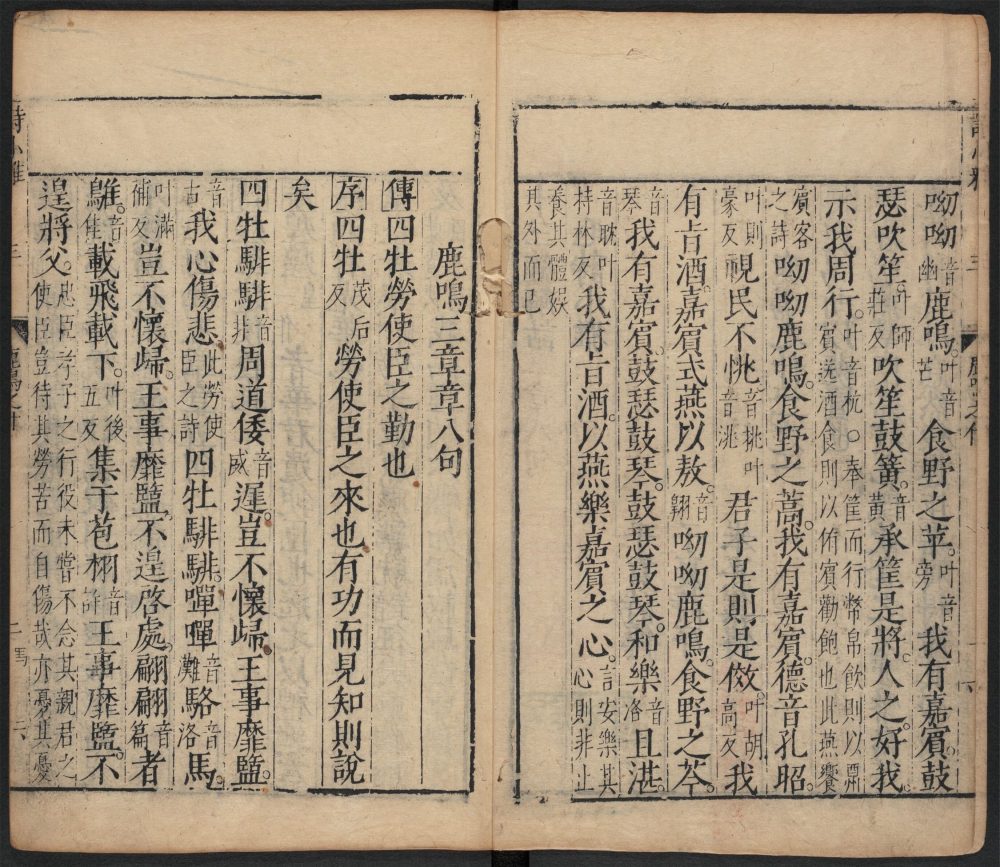 呦呦音幽鹿鳴叶音芒食野之苹叶音旁我有嘉賓鼓
瑟吹笙叶師莊反吹笙鼓簧音黃承筐是將人之好我
示我周行叶音杭○奉筐而行幣帛飲則以酬賓送酒食則以侑賓勸飽也此燕饗
賓客之詩呦呦鹿鳴食野之蒿我有嘉賓德音孔昭
叶則豪反視民不恌音挑叶音洮君子是則是傚叶胡高反我
有旨酒嘉賓式燕以敖音翱呦呦鹿鳴食野之芩
音琴我有嘉賓鼓瑟鼓琴鼓瑟鼓琴和樂音洛且湛
音耽叶持林反我有旨酒以燕樂嘉賓之心言安樂其心則非止
養其體娛其外而已
鹿鳴三章章八句
傳四牡勞使臣之勤也
序四牡茂后反勞使臣之來也有功而見知則說
矣
四牡騑騑音非周道倭音威遲豈不懷歸王事靡盬
音古我心傷悲此勞使臣之詩四牡騑騑嘽嘽音灘駱音洛馬
叶滿補反豈不懷歸王事靡盬不遑啓處翩翩音篇者
鵻音隹載飛載下叶後五反集于苞栩音詡王事靡盬不
遑將父忠臣孝子之行役未嘗不念其親君之使臣豈待其勞苦而自傷哉亦憂其憂
詩小雅
三
二馬
六